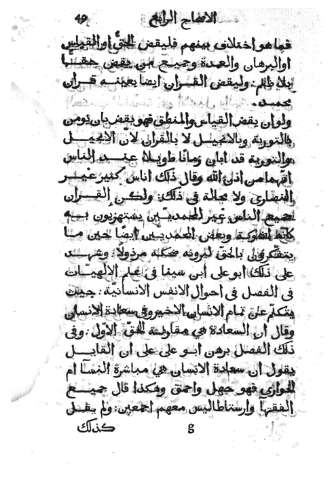 الاصحاح الرابع 49
فيما هو اختلاف بينهم فليقض الحق او القياس
او البرهان والعمدة وجميع من يقض حقـا
بلا ظلم وليقض القران ايضا بعينه قران
محمد
ولو ان يقض القياس والمنطق فهو يقض بان يومن
بالتورية وبالانجيل لا بالقران لان الانجيل
والتورية قد ابان زمانا طويلا عند الناس
انهما من اذن الله وقال ذلك اناس كثير غير
النصاري ولا محالة في ذلك ولكن القران
جميع الناس غير المحمديين يستهزون به
وبعض المحمديين ايضا حين ما
يتفكرون بالحق ليرونه ضحكة مرذولا وشهد
علي ذلك ابو علي ابن سينا في علم الالهيات
في الفصل في احوال الانفس الانسانية حيث
يتكلم عن تمام الانساني الاخير وفي سعادة الانسان
وقال ان السعادة هي مقارنة للحق الاول وفي
ذلك الفصل برهن ابو علي علي ان القايل
يقول ان سعادة الانسان هي مباشرة النسا ام
الجواري فهو جهل واحمق وهكذا قال جميع
الفقها وارسطاطاليس معهم اجمعين ولم يقل
g كذلك